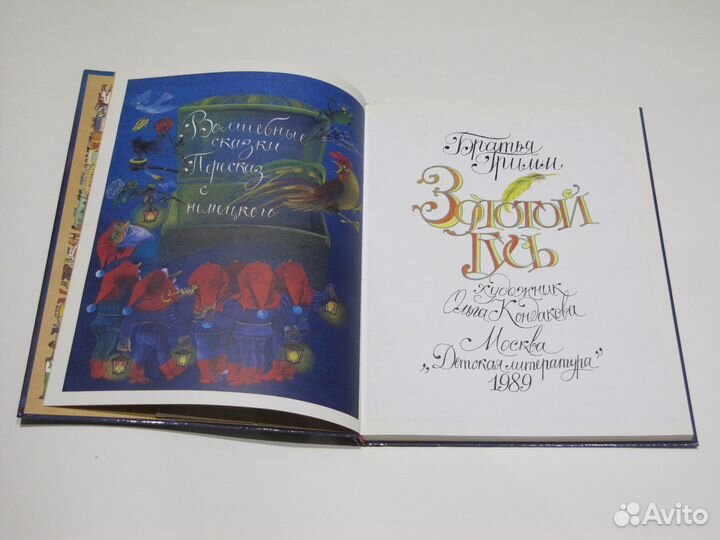 Волшебные
сказки
Пересказ
с
немецкого
Братья
Гримм
Золотой
Гусь
художник
Ольга Кондакова
Москва
„Детская литература"
1989
Avito